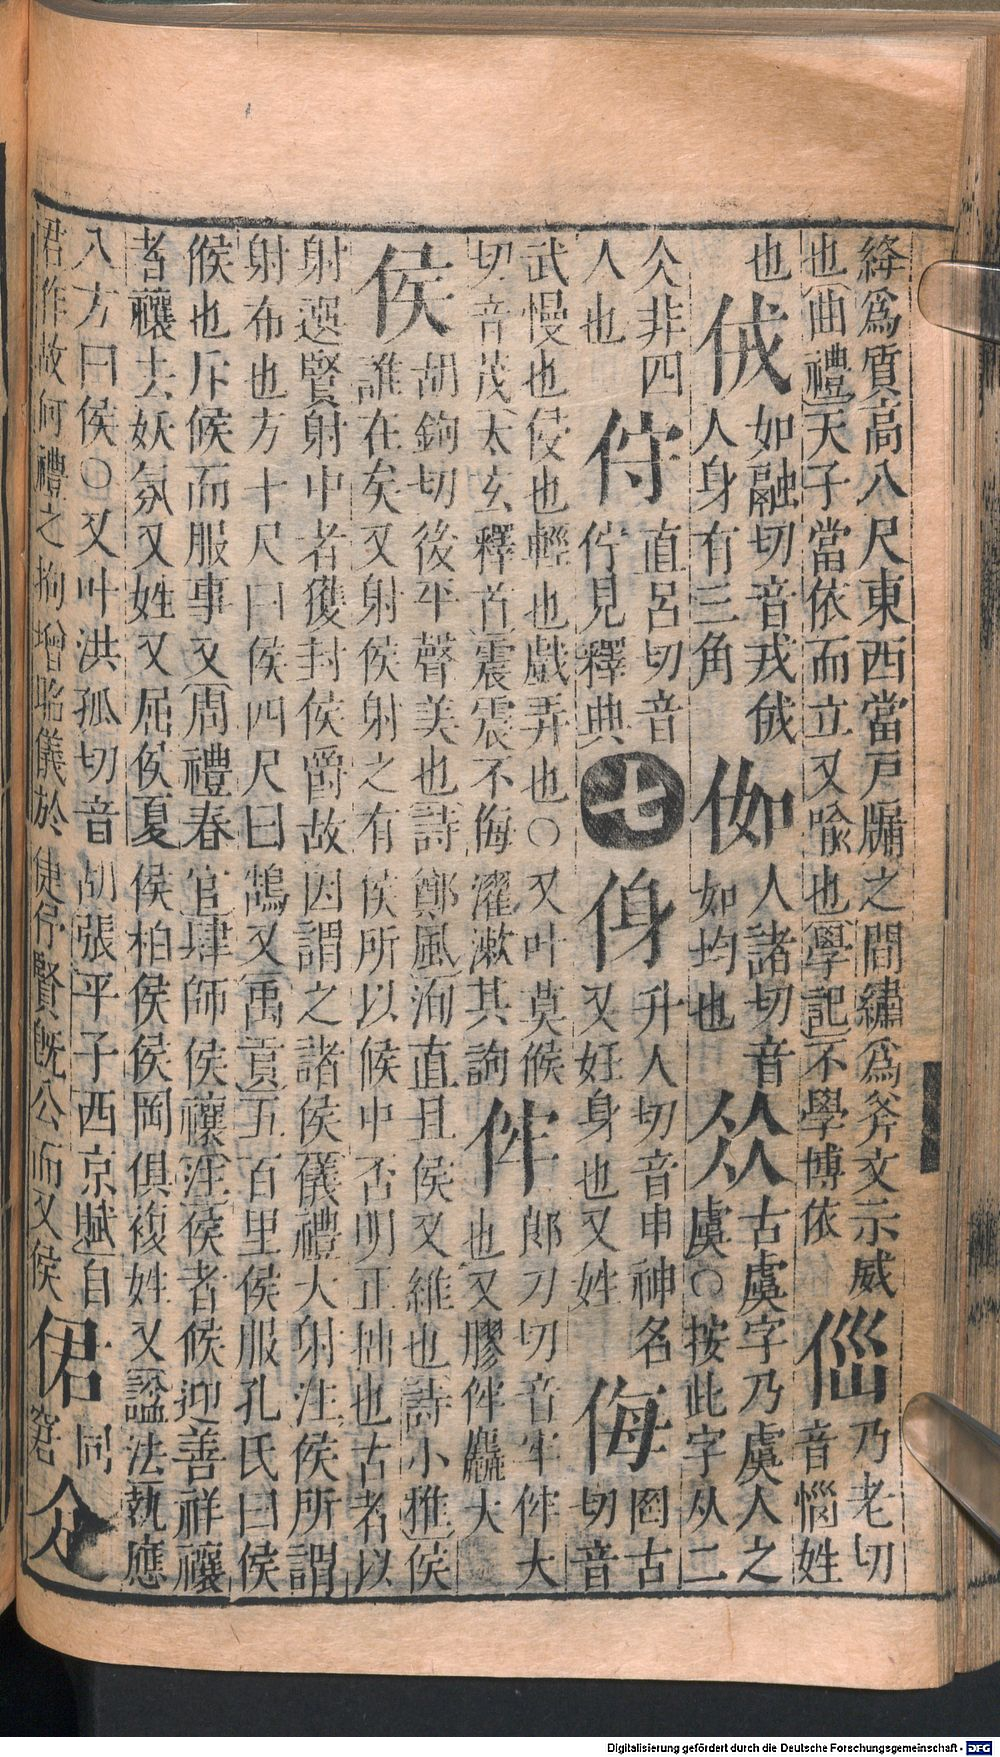 絳爲質高八尺東西當戸牖之間繡爲斧文示威
也曲禮天子當依而立又喩也學記不學博依
㑎
乃老切
音惱姓
也
㑝
如融切音戎㑝
人身有三角
㑚
人諸切音
如均也
𠈌
古虞字乃虞人之
虞○按此字从二
仌非四
人也
㑏
直呂切音
佇見釋典
七
㑗
升人切音申神名
又妊身也又姓
侮
罔古
切音
武慢也侵也輕也戲弄也○又叶莫候
切音茂太玄釋首震震不侮濯漱其詢
㑆
郎刀切音牢㑆大
也又膠㑆麤大
侯
胡鉤切後平聲美也詩鄭風洵直且侯又維也詩小雅侯
誰在矣又射侯射之有侯所以候中否明正拙也古者以
射選賢射中者獲封侯爵故因謂之諸侯儀禮大射注侯所謂
射布也方十尺曰侯四尺曰鵠又禹貢五百里侯服孔氏曰侯
候也斥候而服事又周禮春官肆師侯禳注侯者候迎善祥禳
者禳去妖氛又姓又屈侯夏侯柏侯侯岡俱複姓又諡法執應
八方曰侯○又叶洪孤切音胡張平子西京賦自
君作故何禮之拘增昭儀於倢伃賢旣公而又侯
侰
同
窘